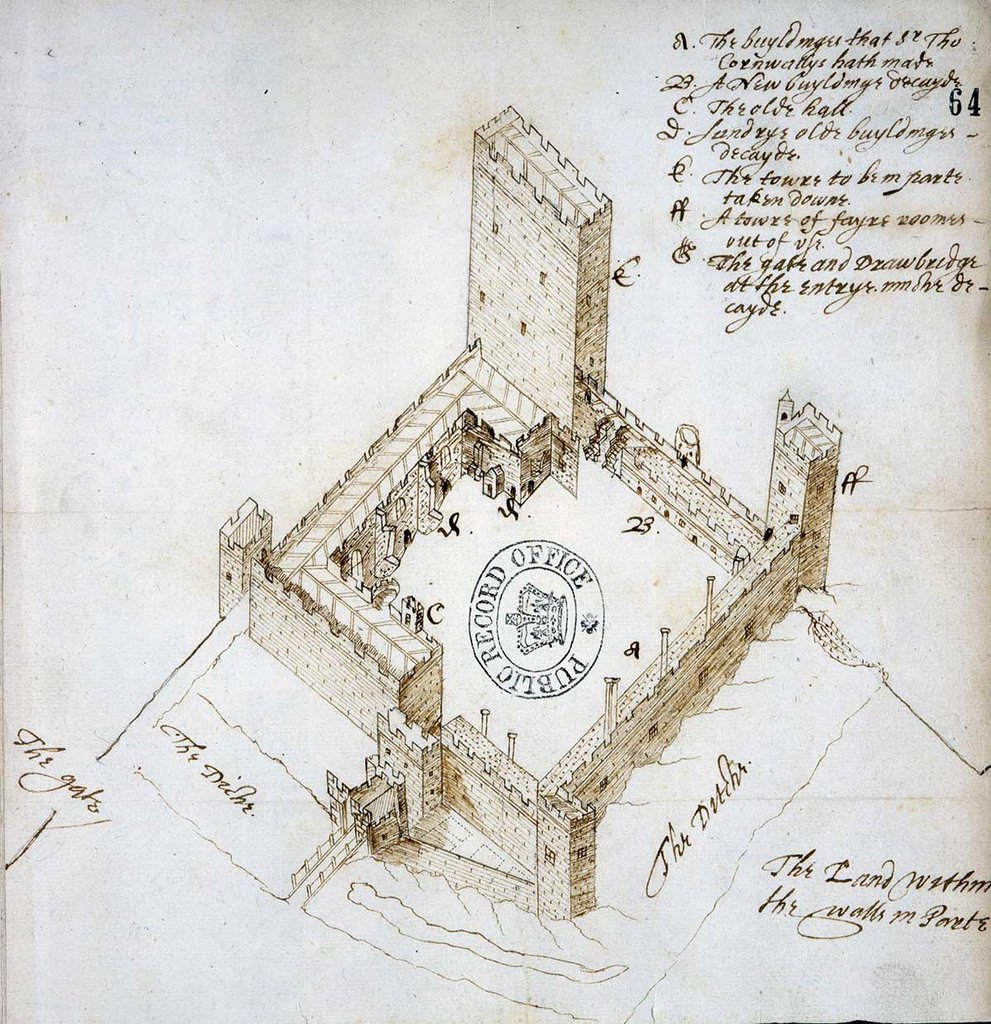 A. The buyldinges that Sr Tho
Cornwallys hath made
B. A New buyldinge decayde
64
C. The olde hall
D. Sundrye olde buyldinges -
decayde.
E. The towre to be in parte
taken downe
ff A towre of fayre roomes -
out of use.
G. The gate and Drawbridge
at the entrye muche de-
cayde.
E.
ff
D.
D.
B.
C
A
PUBLIC RECORD OFFICE
The gate
The Diche.
The Ditche.
The Land within
the walls in Parte